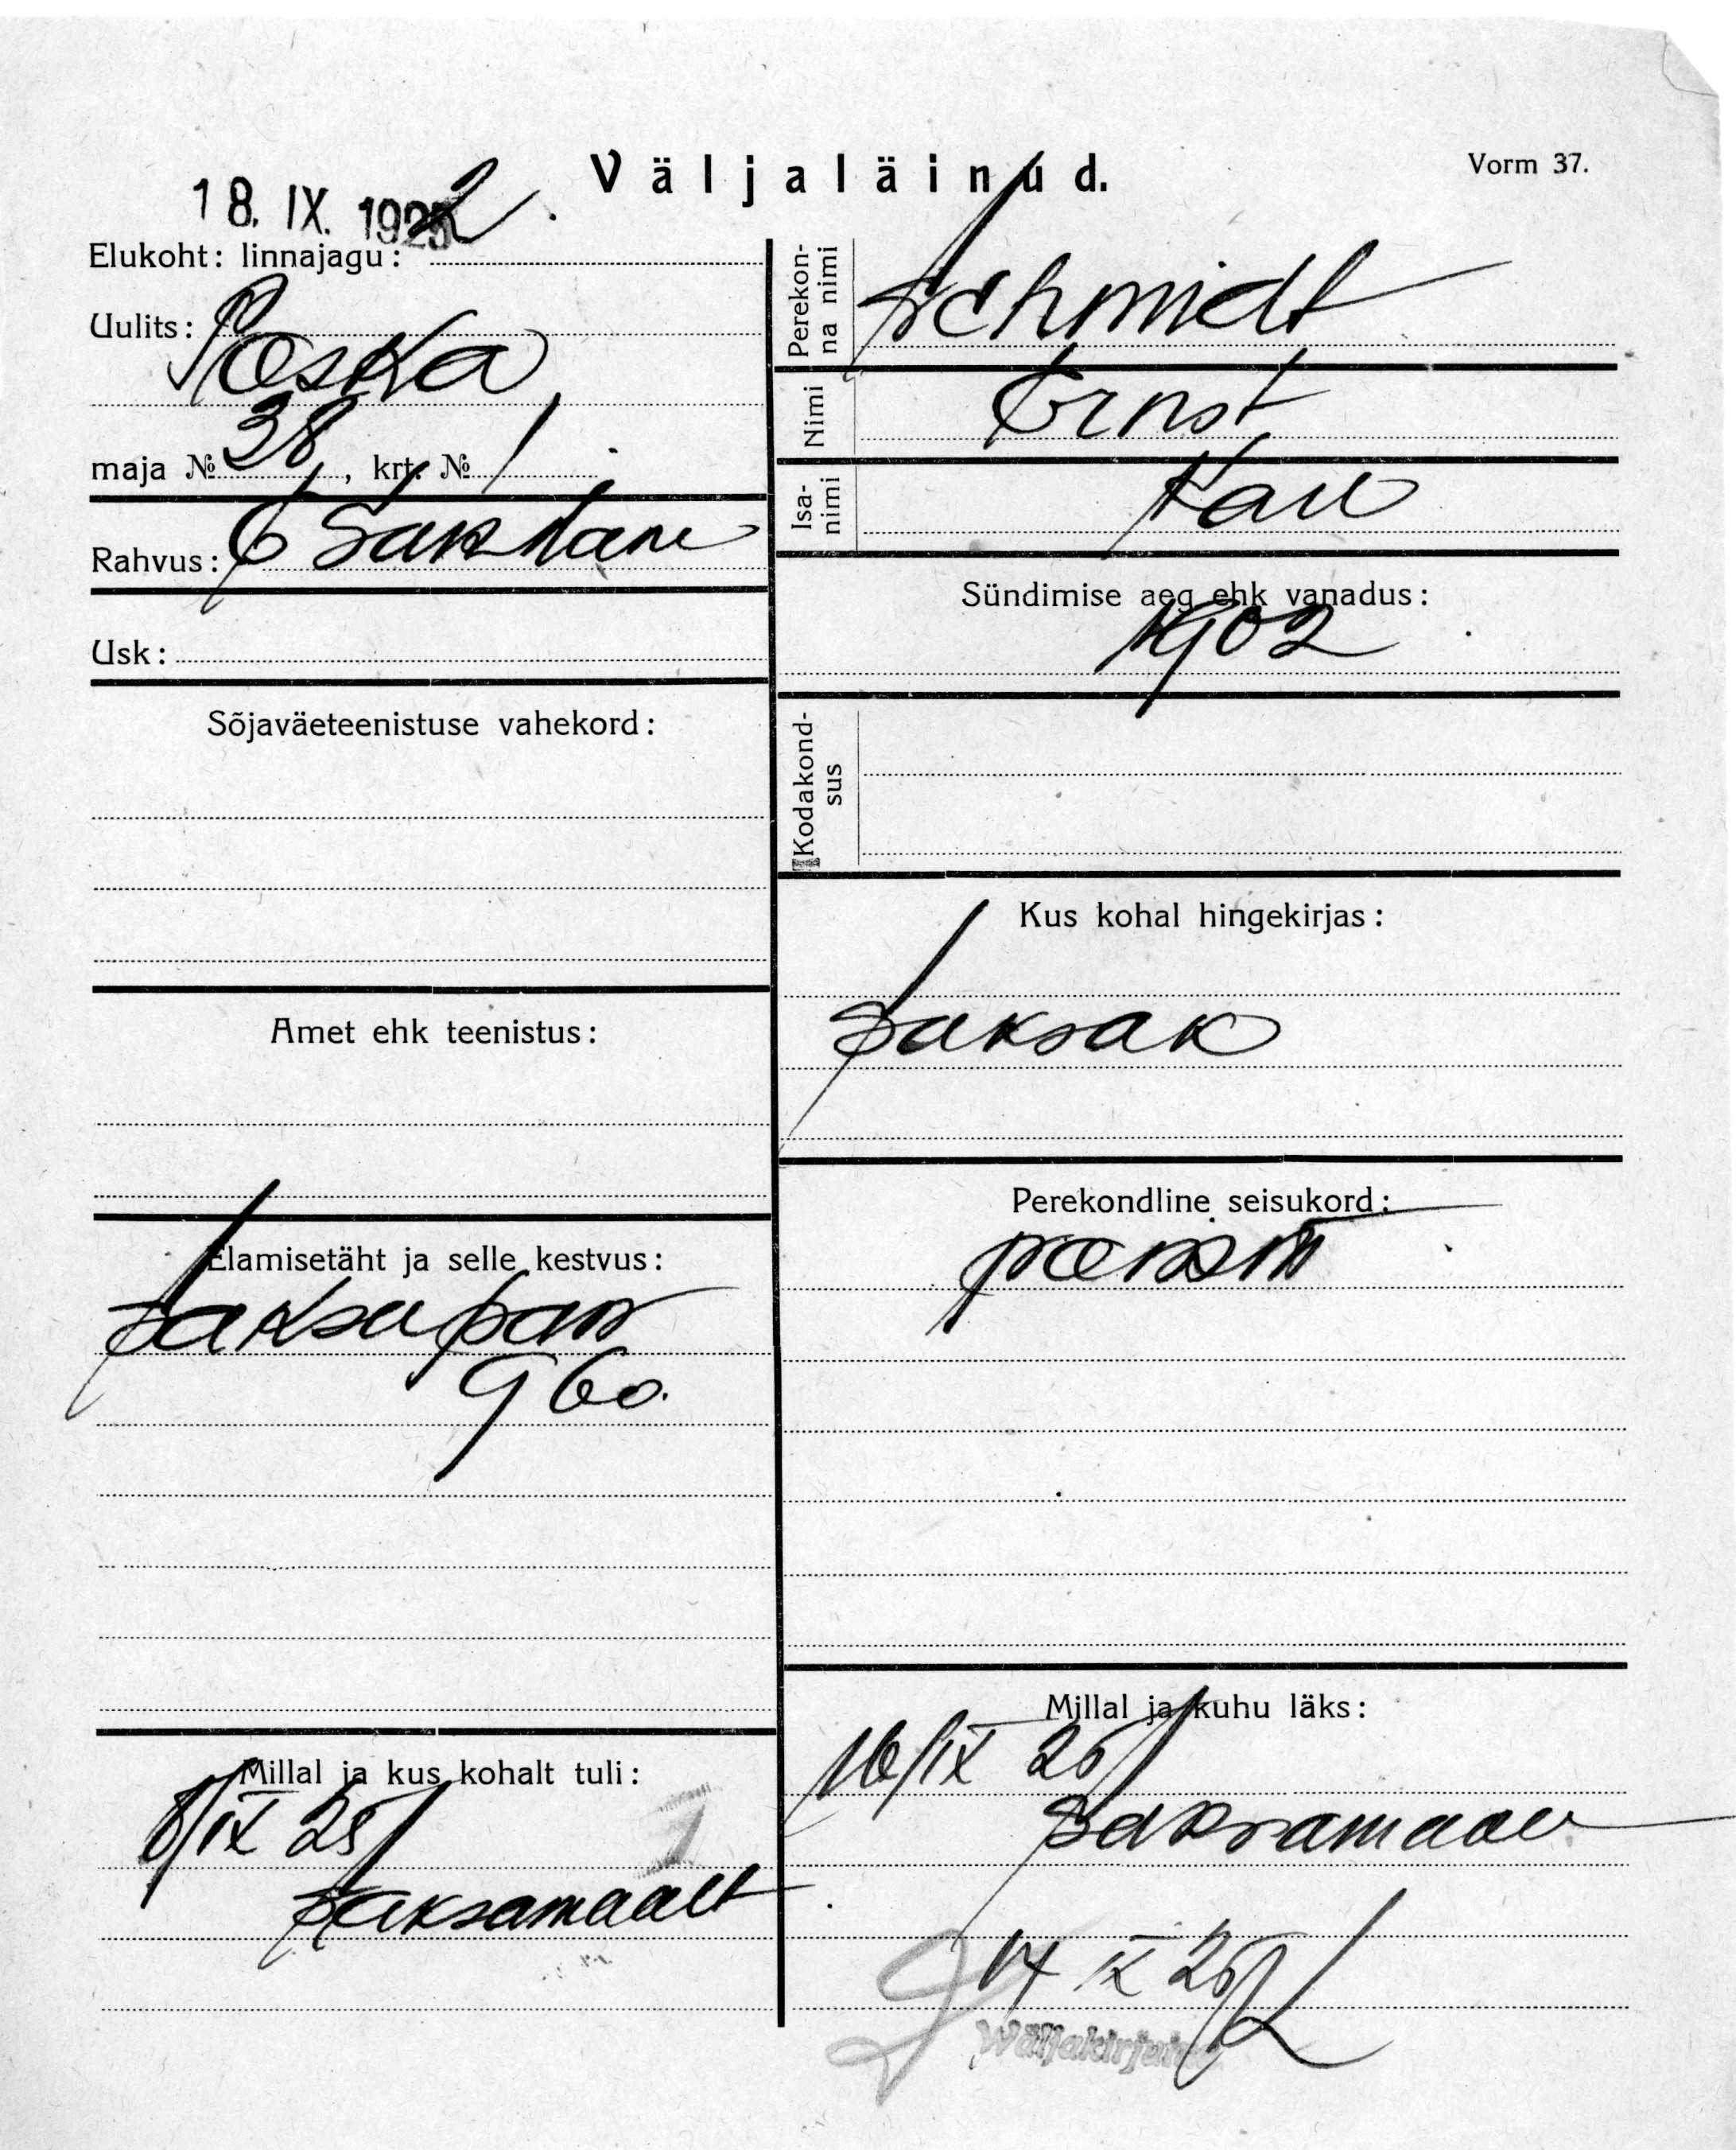 Väljaläinud.
Vorm 37.
18. IX. 1925
Elukoht: linnajagu:
Uulits: Poska
maja № 38, krt. № 1
Rahvus: Sakslane
Usk:
Sõjaväeteenistuse vahekord:
Amet ehk teenistus:
Elamisetäht ja selle kestvus:
Saksa pass
960.
Millal ja kus kohalt tuli:
8/IX 25
Saksamaalt
Perekon-
na nimi
Schmidt
Nimi
Ernst
Isa-
nimi
Karl
Sündimise aeg ehk vanadus:
1902
Kodakond-
sus
Kus kohal hingekirjas:
Saksak
Perekondline seisukord:
Millal ja kuhu läks:
16/IX 25
Saksamaale
IX 25
Wäljakirjutud